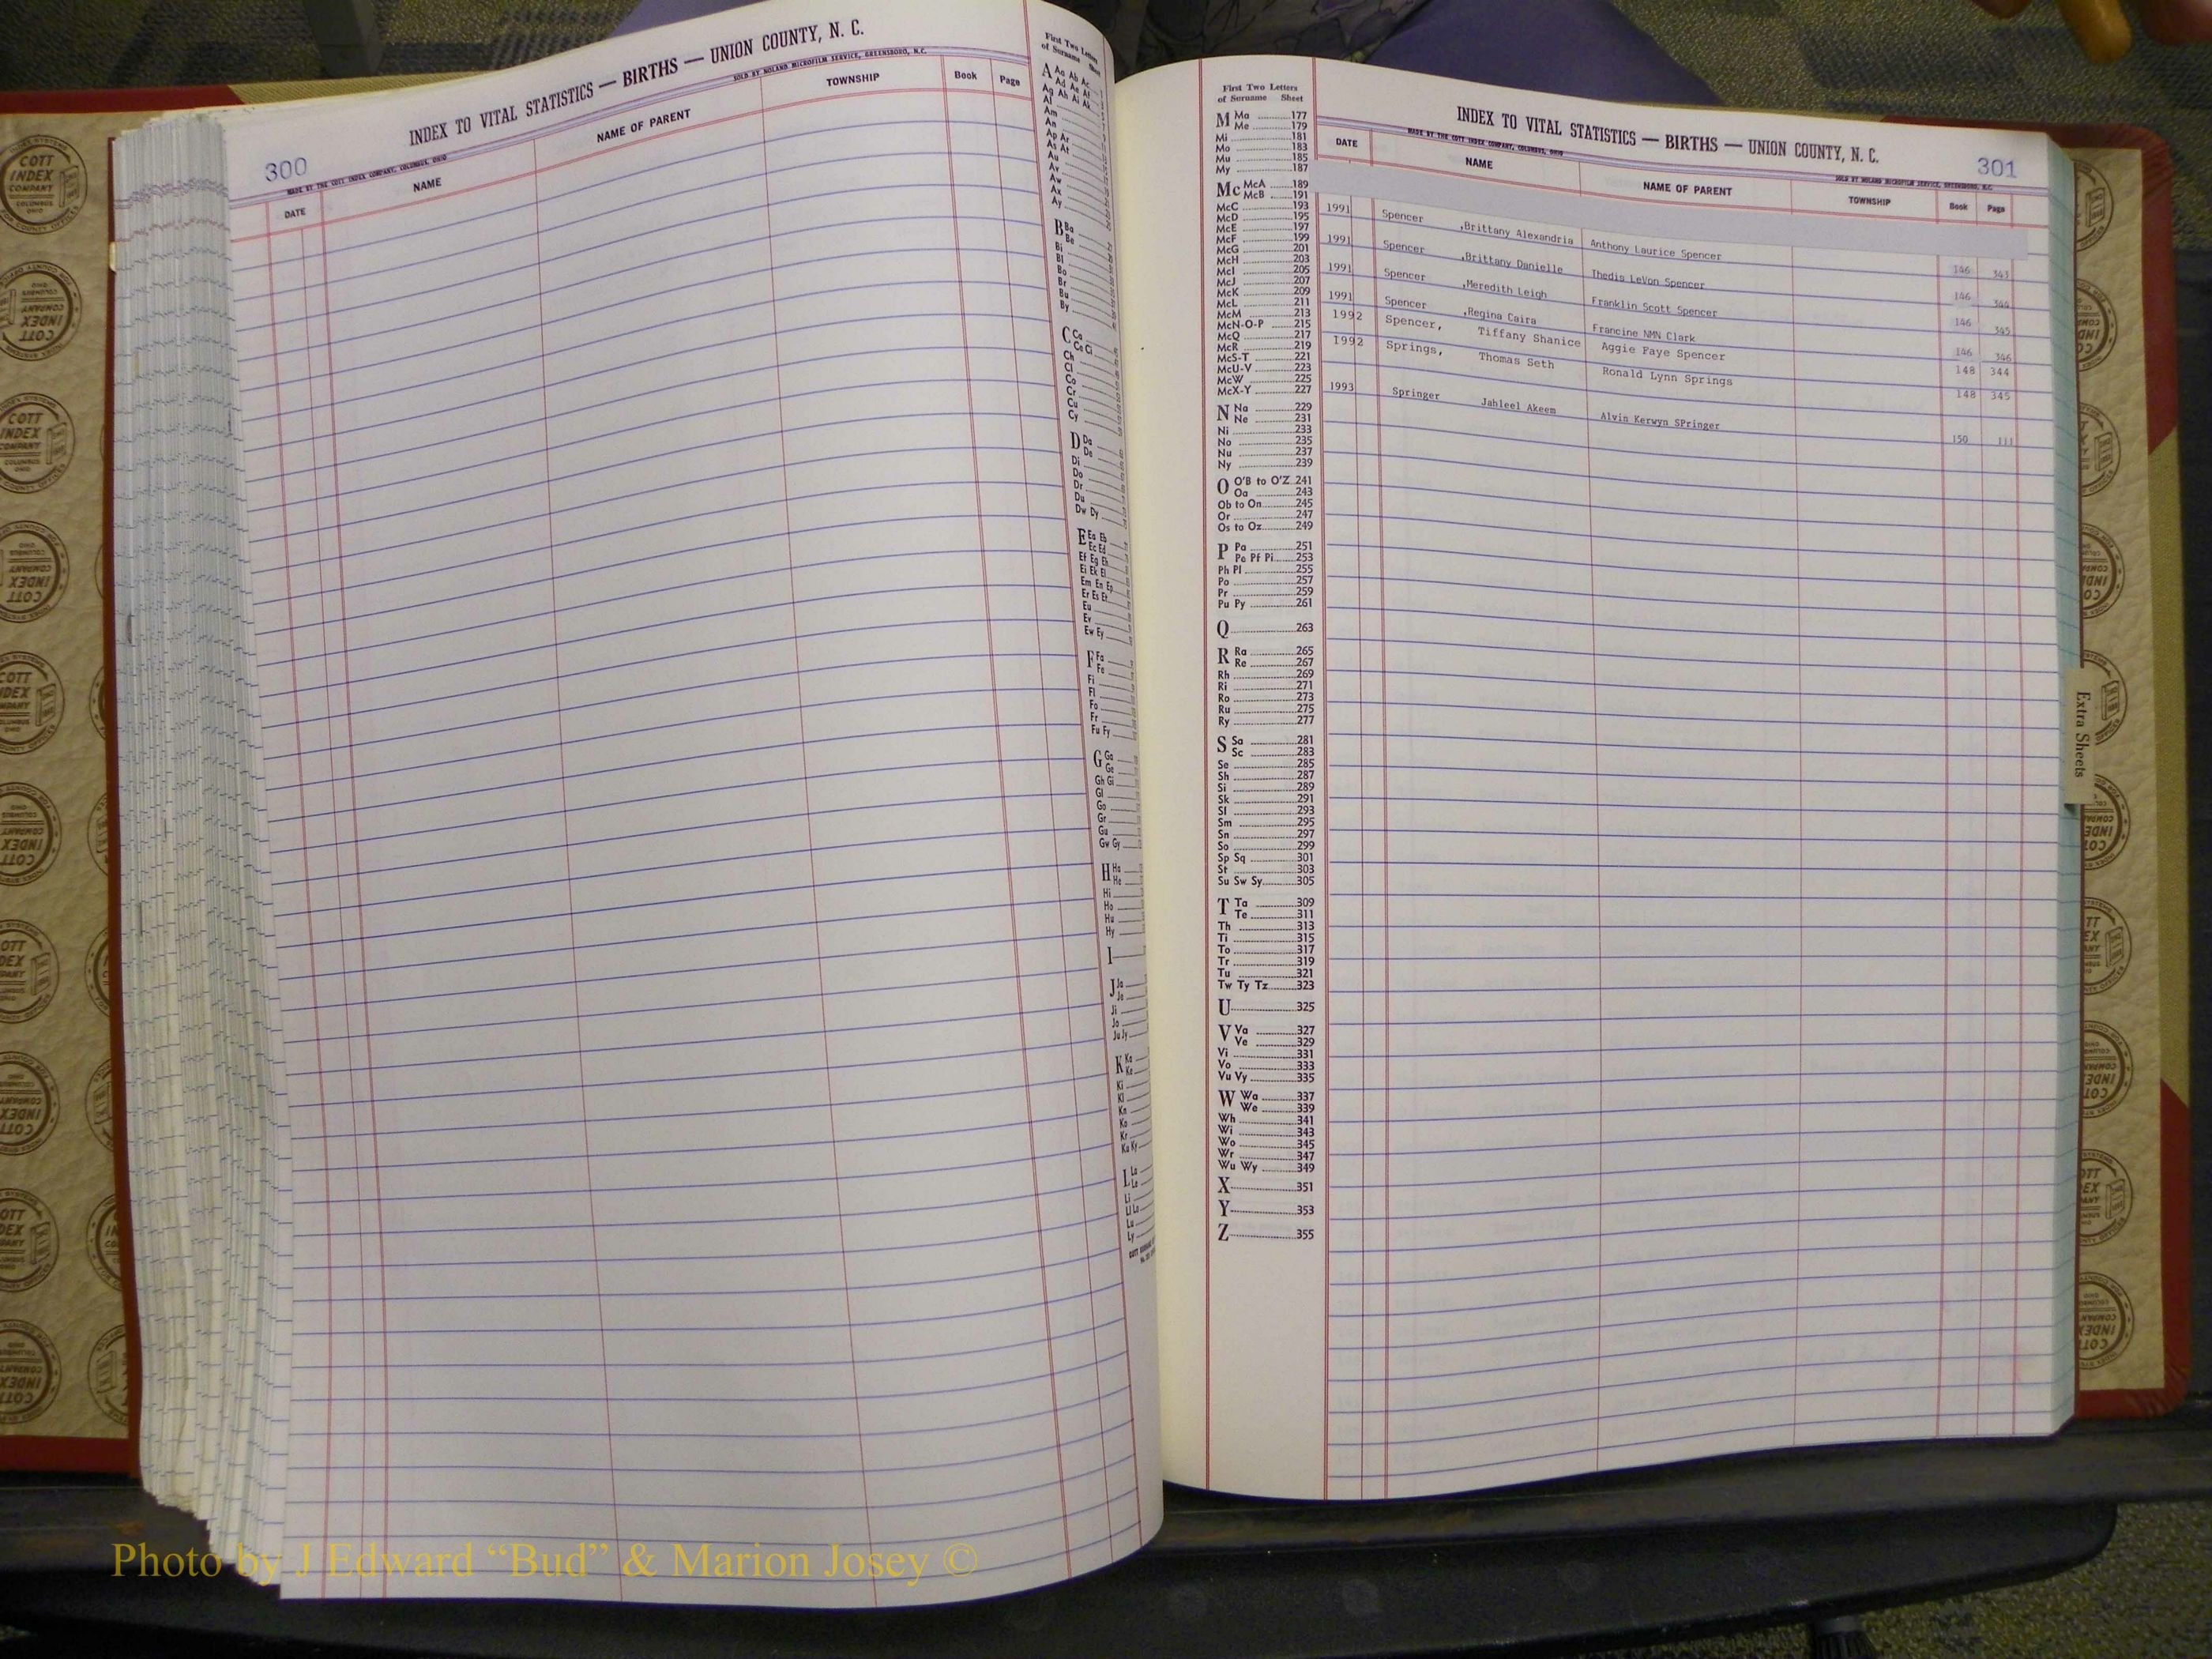 300
INDEX TO VITAL STATISTICS — BIRTHS — UNION COUNTY, N. C.
MADE BY THE COTT INDEX COMPANY, COLUMBUS, OHIO
SOLD BY NOLAND MICROFILM SERVICE, GREENSBORO, N.C.
DATE NAME NAME OF PARENT TOWNSHIP Book Page
First Two Letters
of Surname Sheet
A Aa Ab Ac
Ad Ae Af
Ag Ah Ai Ak
Al
Am
An
Ap Ar
As At
Au
Av
Aw
Ax
Ay
B Ba
Be
Bi
Bl
Bo
Br
Bu
By
C Ca
Ce Ci
Ch
Cl
Co
Cr
Cu
Cy
D Da
De
Di
Do
Dr
Du
Dw Dy
E Ea Eb
Ec Ed
Ef Eg Eh
Ei Ek El
Em En Ep
Er Es Et
Eu
Ev
Ew Ey
F Fa
Fe
Fi
Fl
Fo
Fr
Fu Fy
G Ga
Ge
Gh Gi
Gl
Go
Gr
Gu
Gw Gy
H Ha
He
Hi
Ho
Hu
Hy
I
J Ja
Je
Ji
Jo
Ju Jy
K Ka
Ke
Ki
Kl
Kn
Ko
Kr
Ku Ky
L La
Le
Li
Ll Lo
Lu
Ly
First Two Letters
of Surname Sheet
M Ma 177
Me 179
Mi 181
Mo 183
Mu 185
My 187
Mc McA 189
McB 191
McC 193
McD 195
McE 197
McF 199
McG 201
McH 203
McI 205
McJ 207
McK 209
McL 211
McM 213
McN-O-P 215
McQ 217
McR 219
McS-T 221
McU-V 223
McW 225
McX-Y 227
N Na 229
Ne 231
Ni 233
No 235
Nu 237
Ny 239
O O'B to O'Z 241
Oa 243
Ob to On 245
Or 247
Os to Oz 249
P Pa 251
Pe Pf Pi 253
Ph Pl 255
Po 257
Pr 259
Pu Py 261
Q 263
R Ra 265
Re 267
Rh 269
Ri 271
Ro 273
Ru 275
Ry 277
S Sa 281
Sc 283
Se 285
Sh 287
Si 289
Sk 291
Sl 293
Sm 295
Sn 297
So 299
Sp Sq 301
St 303
Su Sw Sy 305
T Ta 309
Te 311
Th 313
Ti 315
To 317
Tr 319
Tu 321
Tw Ty Tz 323
U 325
V Va 327
Ve 329
Vi 331
Vo 333
Vu Vy 335
W Wa 337
We 339
Wh 341
Wi 343
Wo 345
Wr 347
Wu Wy 349
X 351
Y 353
Z 355
INDEX TO VITAL STATISTICS — BIRTHS — UNION COUNTY, N. C.
301
MADE BY THE COTT INDEX COMPANY, COLUMBUS, OHIO
SOLD BY NOLAND MICROFILM SERVICE, GREENSBORO, N.C.
DATE NAME NAME OF PARENT TOWNSHIP Book Page
1991 Spencer ,Brittany Alexandria Anthony Laurice Spencer 146 343
1991 Spencer ,Brittany Danielle Thedis LeVon Spencer 146 344
1991 Spencer ,Meredith Leigh Franklin Scott Spencer 146 345
1991 Spencer ,Regina Caira Francine NMN Clark 146 346
1992 Spencer, Tiffany Shanice Aggie Faye Spencer 148 344
1992 Springs, Thomas Seth Ronald Lynn Springs 148 345
1993 Springer Jahleel Akeem Alvin Kerwyn SPringer 150 111
Extra Sheets
COTT
INDEX
COMPANY
COLUMBUS
OHIO
Photo by J Edward “Bud” & Marion Josey ©